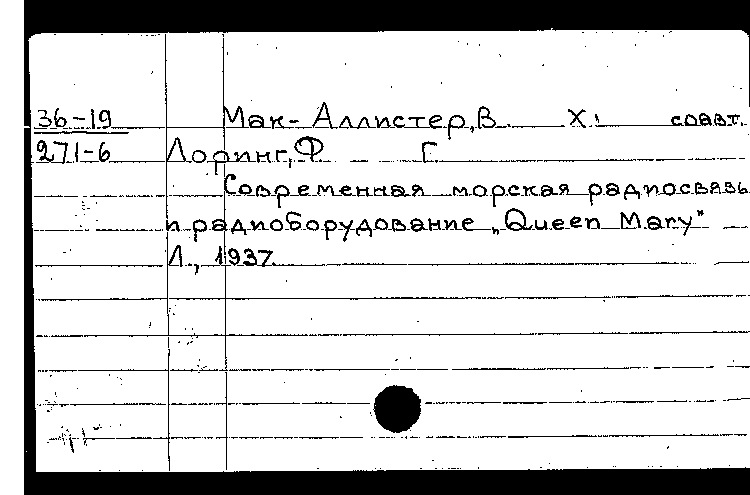 36-19 Мак-Аллистер, В. Х. соавт.
271-6 Лоринг, Ф Г.
Современная морская радиосвязь
и радиоборудование „Queen Mary"
Л., 1937.